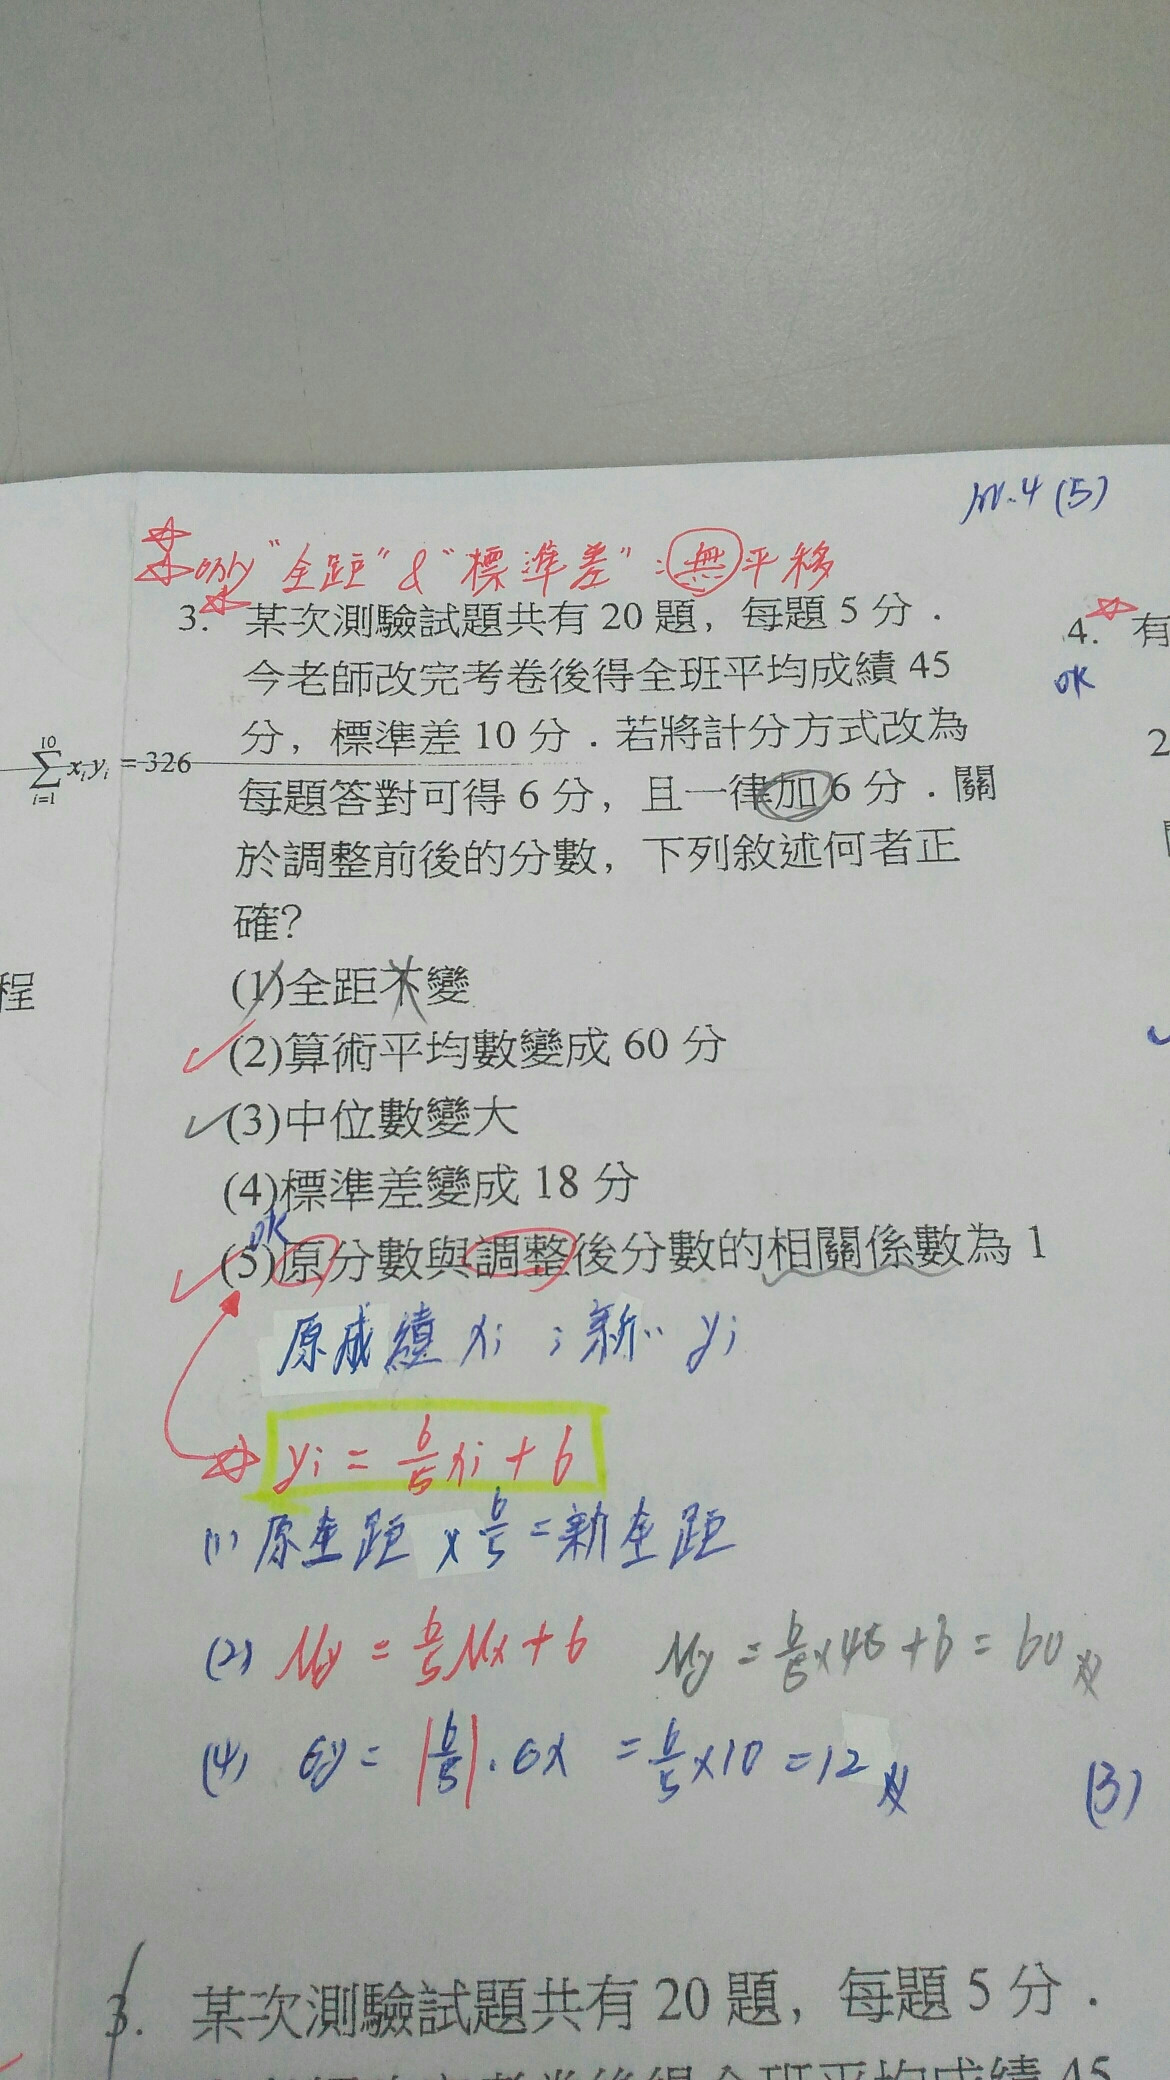 IV-4 (5)
only "全距" & "標準差" : 無平移
3. 某次測驗試題共有 20 題，每題 5 分．
今老師改完考卷後得全班平均成績 45
分，標準差 10 分．若將計分方式改為
每題答對可得 6 分，且一律加 6 分．關
於調整前後的分數，下列敘述何者正
確?
(1)全距不變
(2)算術平均數變成 60 分
(3)中位數變大
(4)標準差變成 18 分
OK
(5)原分數與調整後分數的相關係數為 1
原成績 xi ; 新〃 yi
yi = 6/5 xi + 6
(1) 原全距 x 6/5 = 新全距
(2) My = 6/5 Mx + 6 My = 6/5 x 45 + 6 = 60
(4) 6y = |6/5| . 6x = 6/5 x 10 = 12
3. 某次測驗試題共有 20 題，每題 5 分．
今老師改完考卷後得全班平均成績 45
∑ xi yi = 326
10
i=1
程
4. 有
OK
2
(3)